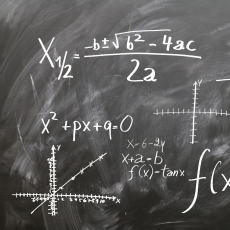 X₁/₂ = (-b ± √(b² - 4ac)) / 2a
y
x² + px + q = 0
x - 6 - 2y
x + a - b
f(x) - tanx
f(x
y
x